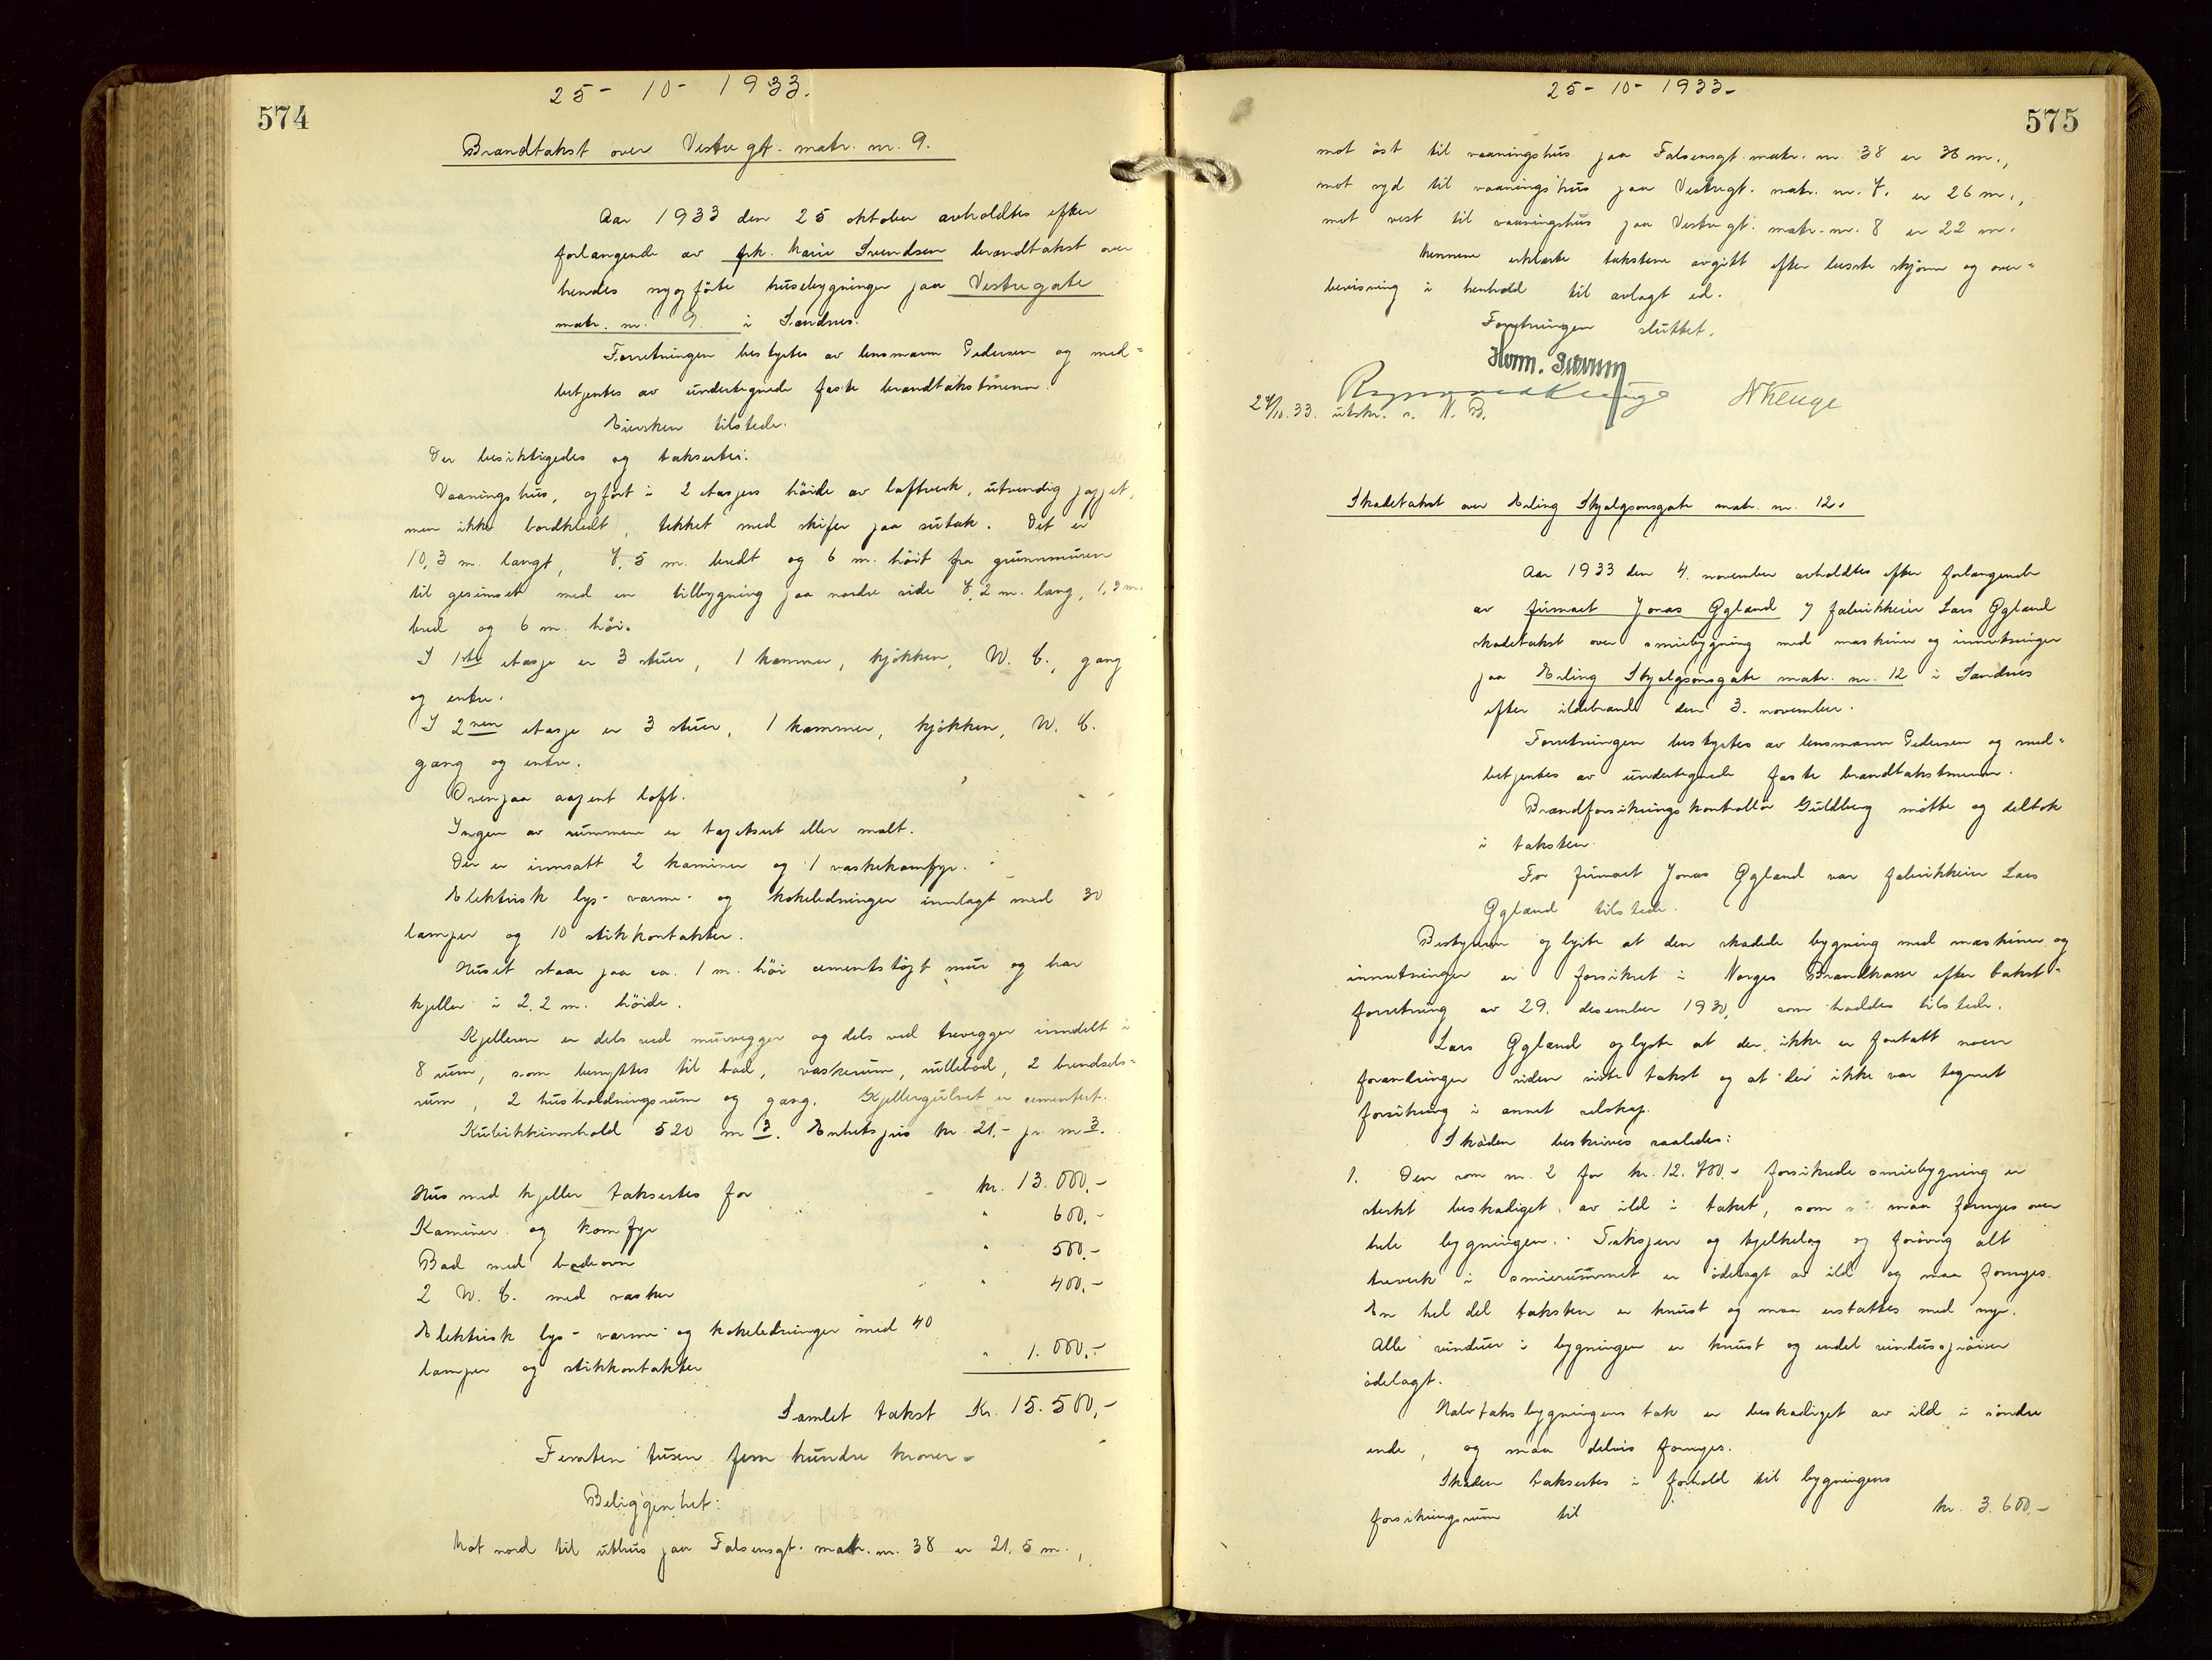 574
25 - 10 - 1933.
Brandtakst over Vestregt. matr. nr. 9.
Aar 1933 den 25 oktober avholdtes efter
forlangende av frk. Marie Svendsen brandtakst over
hendes nyopförte husebygninger paa Vestregate
matr. nr. 9. i Sandnes.
Forretningen bestyrtes av lensmann Pedersen og med-
betjentes av undertegnede faste brandtakstmenn.
Eiersken tilstede.
Der besiktigedes og taksertes:
Vaaningshus, opfört i 2 etasjers höide av laftverk, utvendig pappet,
men ikke bordkledt, tekket med skifer paa sutak. Det er
10,3 m. langt, 7,5 m. bredt og 6 m. höit fra grunnmuren
til gesimset med en tilbygning paa nordre side 7,2 m. lang, 1,3 m.
bred og 6 m. höi.
I 1ste etasje er 3 stuer, 1 kammer, kjökken, W. C., gang
og entre.
I 2nen etasje er 3 stuer, 1 kammer, kjökken, W. C.
gang og entre.
Ovenpaa aapent loft.
Ingen av rummene er tapetsert eller malt.
Der er innsatt 2 kaminer og 1 vaskekomfyr.
Elektrisk lys- varme- og kokeledninger innlagt med 30
lamper og 10 stikkontakter.
Huset staar paa ca. 1 m. höi cementstöpt mur og har
kjeller i 2,2 m. höide.
Kjelleren er dels ved murvegger og dels ved trevegger inndelt i
8 rum, som benyttes til bad, vaskerum, rullebod, 2 brendsels-
rum, 2 husholdningsrum og gang. Kjellergulvet er cementert.
Kubikkinnhold 520 m 3. Enhetspris kr. 21,- pr. m 3.
Hus med kjeller taksertes for kr. 13.000,-
Kaminer og komfyr " 600,-
Bad med badeovn " 500,-
2 W. C. med vasker " 400,-
Elektrisk lys- varme og kokeledninger med 40
lamper og stikkontakter " 1.000,-
Samlet takst Kr. 15.500,-
Femten tusen fem hundre kroner-
Beliggenhet:
Mot nord til uthus paa Falsensgt. matr. nr. 38 er 21,5 m.,
25 - 10 - 1933-
575
mot öst til vaaningshus paa Falsensgt. matr. nr. 38 er 36 m.,
mot syd til vaaningshus paa Vestregt. matr. nr. 7. er 26 m.,
mot vest til vaaningshus paa Vestregt. matr. nr. 8 er 22 m.
Mennene erklærte takstene avgitt efter beste skjönn og over-
bevisning i henhold til avlagt ed.
Forretningen sluttet.
N Kenge
27/10.33. utskr. s. N. B.
Skadetakst over Erling Skjalgsonsgate matr. nr. 12.
Aar 1933 den 4. november avholdtes efter forlangende
av firmaet Jonas Øglænd v/ fabrikkeier Lars Øglænd
skadetakst over smiebygning med maskiner og innretninger
paa Erling Skjalgsonsgate matr. nr. 12 i Sandnes
efter ildebrand den 3. november.
Forretningen bestyrtes av lensmann Pedersen og med-
betjentes av undertegnede faste brandtakstmenn.
Brandforsikringskontrollör Guldberg mötte og deltok
i taksten.
For firmaet Jonas Øglænd var fabrikkeier Lars
Øglænd tilstede.
Bestyreren oplyste at den skadede bygning med maskiner og
innretninger er forsikret i Norges Brandkasse efter takst-
forretning av 29. desember 1930, som haddes tilstede.
Lars Øglænd oplyste at der ikke er foretatt noen
forandringer siden siste takst og at der ikke var tegnet
forsikring i annet selskap.
Skaden beskrives saaledes:
1. Den som nr. 2 for kr. 12.700.- forsikrede smiebygning er
sterkt beskadiget av ild i taket, som maa fornyes over
hele bygningen. Taksperr og bjelkelag og forövrig alt
treverk i smierummet er ödelagt av ild og maa fornyes.
En hel del taksten er knust og maa erstattes med nye.
Alle vinduer i bygningen er knust og endel vindussprösser
ödelagt.
Halvtaksbygningens tak er beskadiget av ild i söndre
ende, og maa delvis fornyes.
Skaden taksertes i forhold til bygningens
forsikringssum til kr. 3.600.-